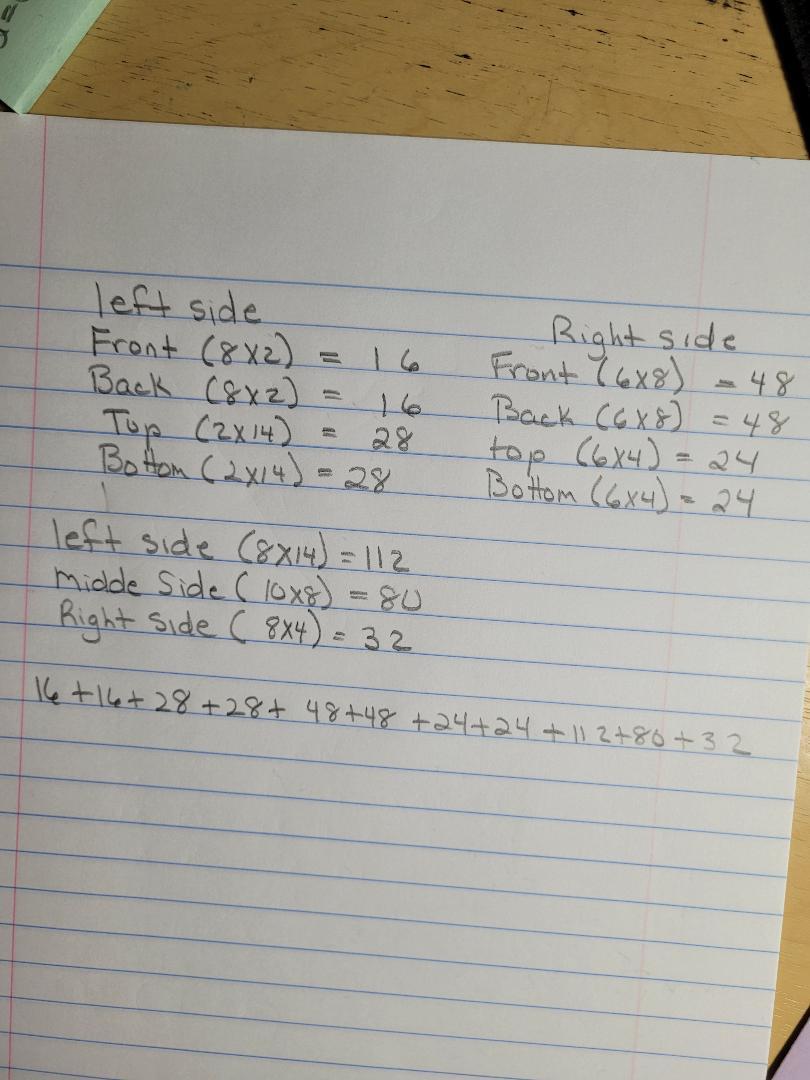 left side
Front (8x2) = 16
Back (8x2) = 16
Top (2x14) = 28
Bottom (2x14) = 28
Right side
Front (6x8) = 48
Back (6x8) = 48
top (6x4) = 24
Bottom (6x4) = 24
left side (8x14) = 112
midde Side (10x8) = 80
Right side (8x4) = 32
16+16+28+28+48+48+24+24+112+80+32